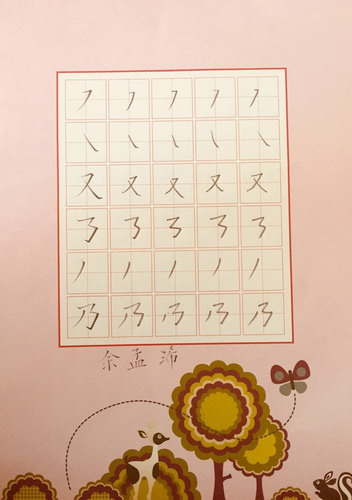 ㇇ ㇇ ㇇ ㇇ ㇇
㇏ ㇏ ㇏ ㇏ ㇏
又 又 又 又 又
㇡ ㇡ ㇡ ㇡ ㇡
丿 丿 丿 丿 丿
乃 乃 乃 乃 乃
余孟